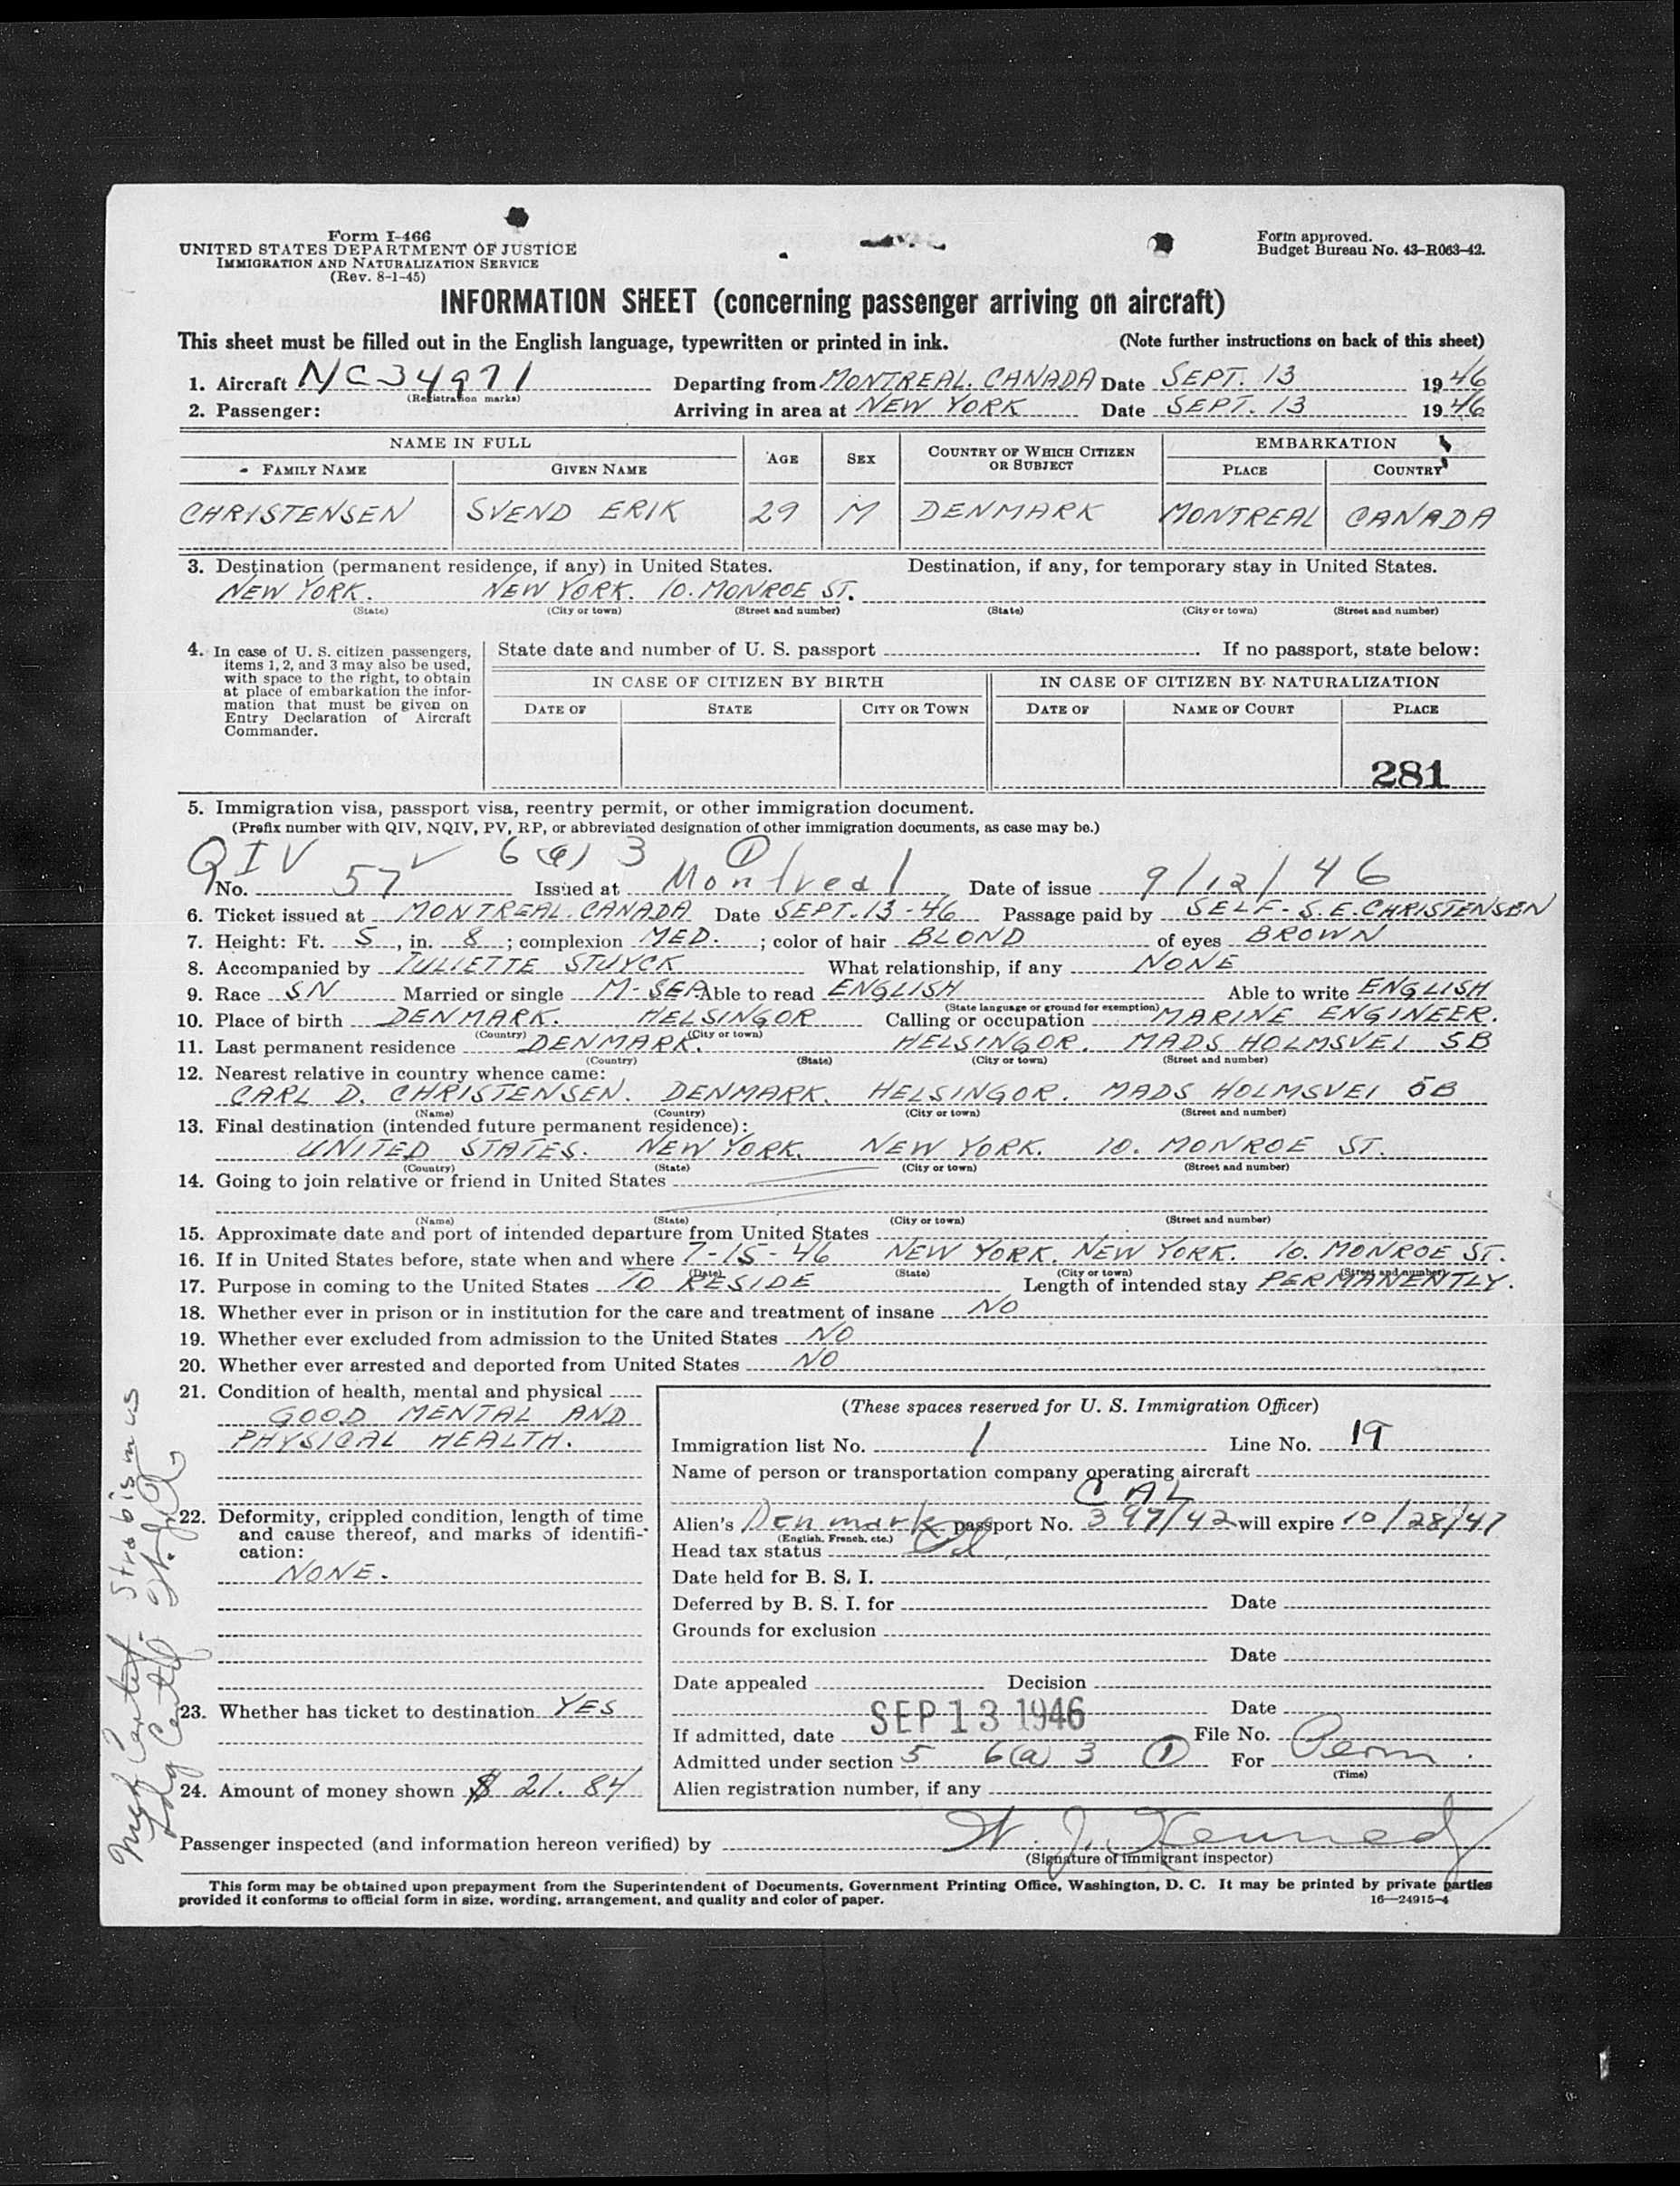 Form I-466
UNITED STATES DEPARTMENT OF JUSTICE
IMMIGRATION AND NATURALIZATION SERVICE
(Rev. 8-1-45)
Form approved.
Budget Bureau No. 43-R063-42.
INFORMATION SHEET (concerning passenger arriving on aircraft)
This sheet must be filled out in the English language, typewritten or printed in ink. (Note further instructions on back of this sheet)
1. Aircraft NC34971 Departing from MONTREAL. CANADA Date SEPT. 13 1946
(Registration marks)
2. Passenger: Arriving in area at NEW YORK Date SEPT. 13 1946
NAME IN FULL AGE SEX COUNTRY OF WHICH CITIZEN OR SUBJECT EMBARKATION
FAMILY NAME GIVEN NAME PLACE COUNTRY
CHRISTENSEN SVEND ERIK 29 M DENMARK MONTREAL CANADA
3. Destination (permanent residence, if any) in United States. Destination, if any, for temporary stay in United States.
NEW YORK. NEW YORK. 10. MONROE ST.
(State) (City or town) (Street and number) (State) (City or town) (Street and number)
4. In case of U. S. citizen passengers,
items 1, 2, and 3 may also be used,
with space to the right, to obtain
at place of embarkation the infor-
mation that must be given on
Entry Declaration of Aircraft
Commander.
State date and number of U. S. passport If no passport, state below:
IN CASE OF CITIZEN BY BIRTH IN CASE OF CITIZEN BY NATURALIZATION
DATE OF STATE CITY OR TOWN DATE OF NAME OF COURT PLACE
281
5. Immigration visa, passport visa, reentry permit, or other immigration document.
(Prefix number with QIV, NQIV, PV, RP, or abbreviated designation of other immigration documents, as case may be.)
QIV 6(a) 3 1
No. 57 Issued at Montreal Date of issue 9/12/46
6. Ticket issued at MONTREAL. CANADA Date SEPT. 13-46 Passage paid by SELF-S.E. CHRISTENSEN
7. Height: Ft. 5, in. 8; complexion MED.; color of hair BLOND of eyes BROWN
8. Accompanied by JULIETTE STUYCK What relationship, if any NONE
9. Race SN Married or single M-SEP. Able to read ENGLISH Able to write ENGLISH
(State language or ground for exemption)
10. Place of birth DENMARK. HELSINGOR Calling or occupation MARINE ENGINEER.
(Country) (City or town)
11. Last permanent residence DENMARK. HELSINGOR. MADS HOLMSVEI 5B
(Country) (State) (City or town) (Street and number)
12. Nearest relative in country whence came:
CARL D. CHRISTENSEN. DENMARK. HELSINGOR. MADS HOLMSVEI 5B
(Name) (Country) (City or town) (Street and number)
13. Final destination (intended future permanent residence):
UNITED STATES. NEW YORK. NEW YORK. 10. MONROE ST.
(Country) (State) (City or town) (Street and number)
14. Going to join relative or friend in United States
(Name) (State) (City or town) (Street and number)
15. Approximate date and port of intended departure from United States
16. If in United States before, state when and where 7-15-46 NEW YORK. NEW YORK. 10. MONROE ST.
(Date) (State) (City or town) (Street and number)
17. Purpose in coming to the United States TO RESIDE Length of intended stay PERMANENTLY.
18. Whether ever in prison or in institution for the care and treatment of insane NO
19. Whether ever excluded from admission to the United States NO
20. Whether ever arrested and deported from United States NO
21. Condition of health, mental and physical
GOOD MENTAL AND
PHYSICAL HEALTH.
22. Deformity, crippled condition, length of time
and cause thereof, and marks of identifi-
cation:
NONE.
23. Whether has ticket to destination YES
24. Amount of money shown $ 21.84
Strabismus
(These spaces reserved for U. S. Immigration Officer)
Immigration list No. 1 Line No. 19
Name of person or transportation company operating aircraft
CAL
Alien's Denmark passport No. 397/42 will expire 10/28/47
(English, French, etc.)
Head tax status
Date held for B. S. I.
Deferred by B. S. I. for Date
Grounds for exclusion
Date
Date appealed Decision
Date
If admitted, date SEP 13 1946 File No.
Admitted under section 5 6(a) 3 1 For Perm.
(Time)
Alien registration number, if any
Passenger inspected (and information hereon verified) by W. J. Kennedy
(Signature of immigrant inspector)
This form may be obtained upon prepayment from the Superintendent of Documents, Government Printing Office, Washington, D. C. It may be printed by private parties
provided it conforms to official form in size, wording, arrangement, and quality and color of paper. 16—24915-4